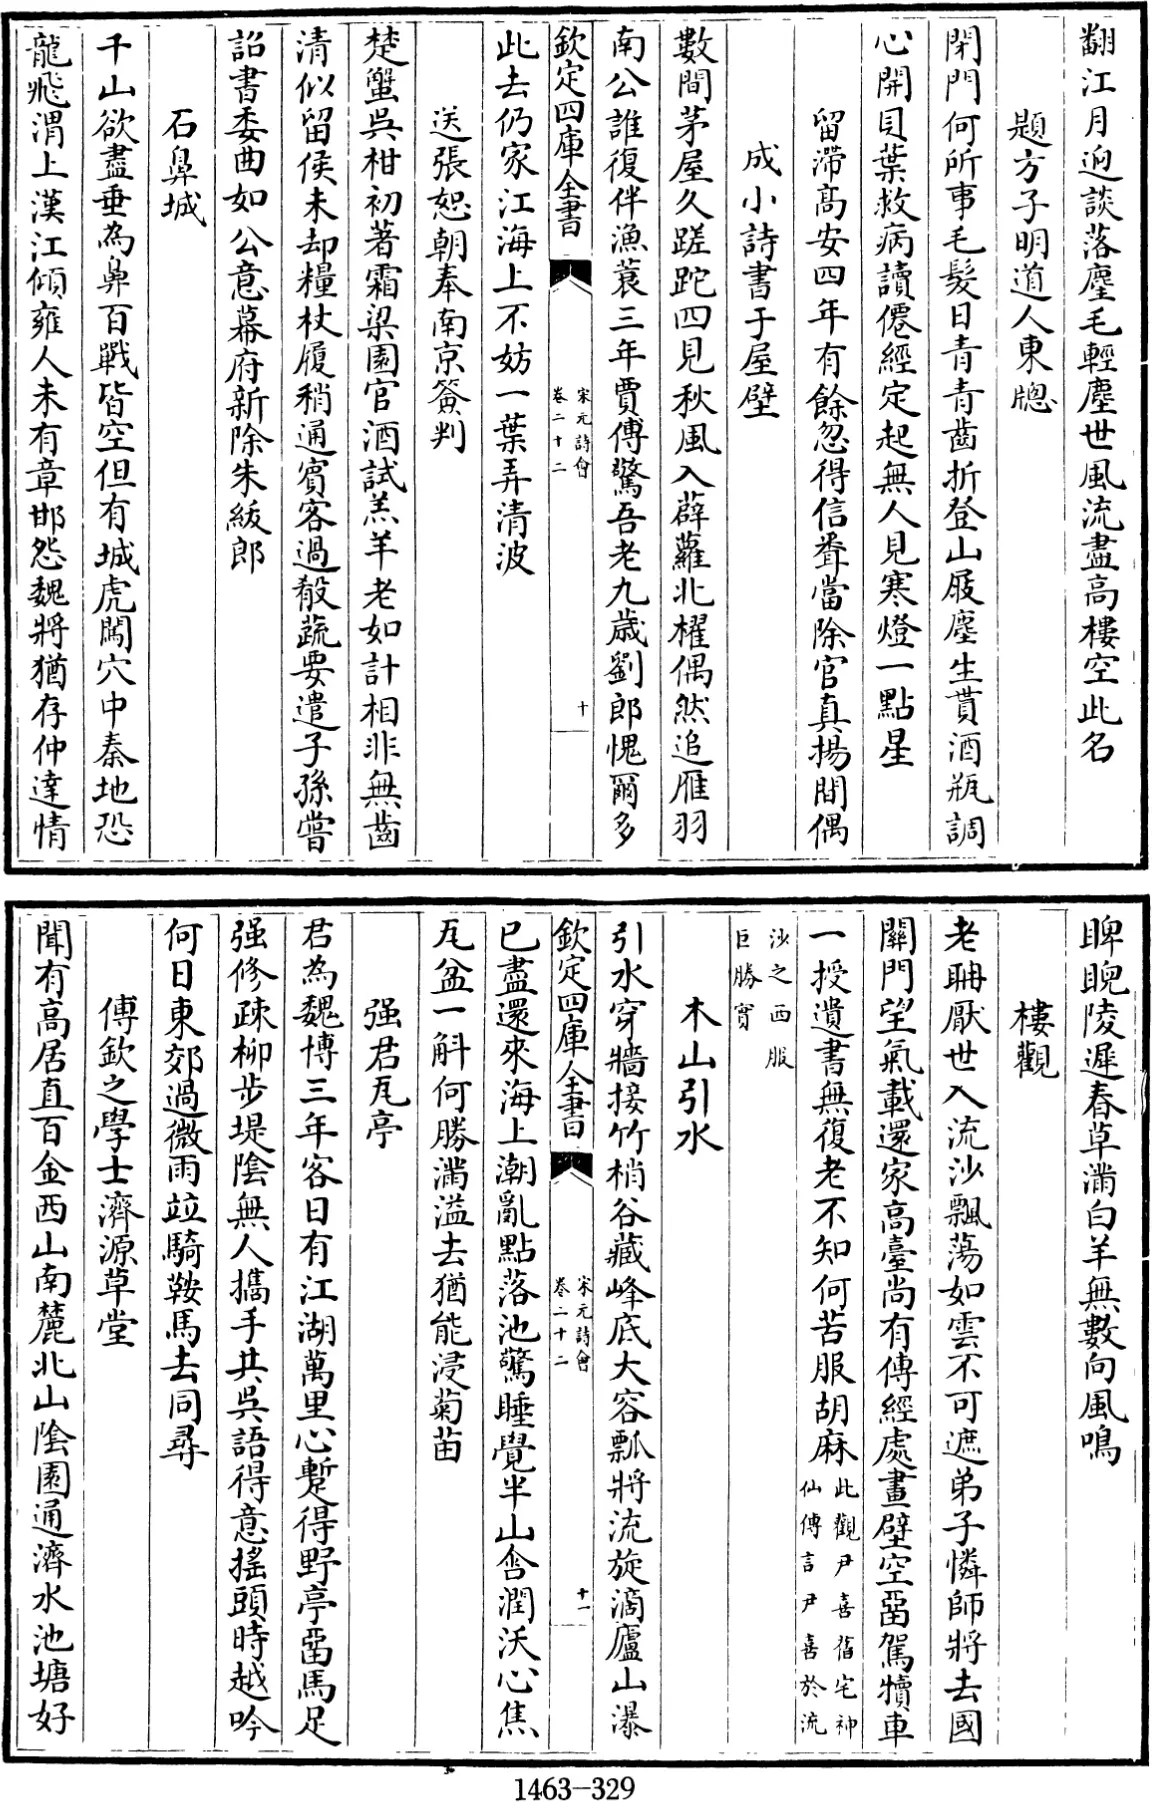 翻江月迥談落麈毛輕塵世風流盡高樓空此名
題方子明道人東牕
閉門何所事毛髮日青青齒折登山屐塵生貰酒瓶調
心開貝葉救病讀僊經定起無人見寒燈一點星
留滯高安四年有餘忽得信聳當除官真揚間偶
成小詩書于屋壁
數間茅屋久蹉跎四見秋風入薜蘿北櫂偶然追雁羽
南公誰復伴漁蓑三年賈傅驚吾老九歲劉郎愧爾多
欽定四庫全書
宋元詩會
卷二十二
十
此去仍家江海上不妨一葉弄清波
送張恕朝奉南京簽判
楚蟹吳柑初著霜梁園官酒試羔羊老如計相非無齒
清似留侯未却糧杖履稍通賓客過殽蔬要遣子孫嘗
詔書委曲如公意幕府新除朱紱郎
石鼻城
千山欲盡垂為鼻百戰皆空但有城虎鬬穴中秦地恐
龍飛渭上漢江傾雍人未有章邯怨魏將猶存仲達情
睥睨陵遲春草滿白羊無數向風鳴
樓觀
老聃厭世入流沙飄蕩如雲不可遮弟子憐師將去國
關門望氣載還家高臺尚有傳經處畫壁空留駕犢車
一授遺書無復老不知何苦服胡麻
此觀尹喜舊宅神
仙傳言尹喜於流
沙之西服
巨勝實
木山引水
引水穿牆接竹梢谷藏峰底大容瓢將流旋滴廬山瀑
欽定四庫全書
宋元詩會
卷二十二
十一
已盡還來海上潮亂點落池驚睡覺半山含潤沃心焦
瓦盆一斛何勝滿溢去猶能浸菊苗
强君瓦亭
君為魏博三年客日有江湖萬里心蹔得野亭留馬足
强修疎柳步堤陰無人攜手共吳語得意搖頭時越吟
何日東郊過微雨竝騎鞍馬去同尋
傅欽之學士濟源草堂
聞有高居直百金西山南麓北山陰園通濟水池塘好
1463-329